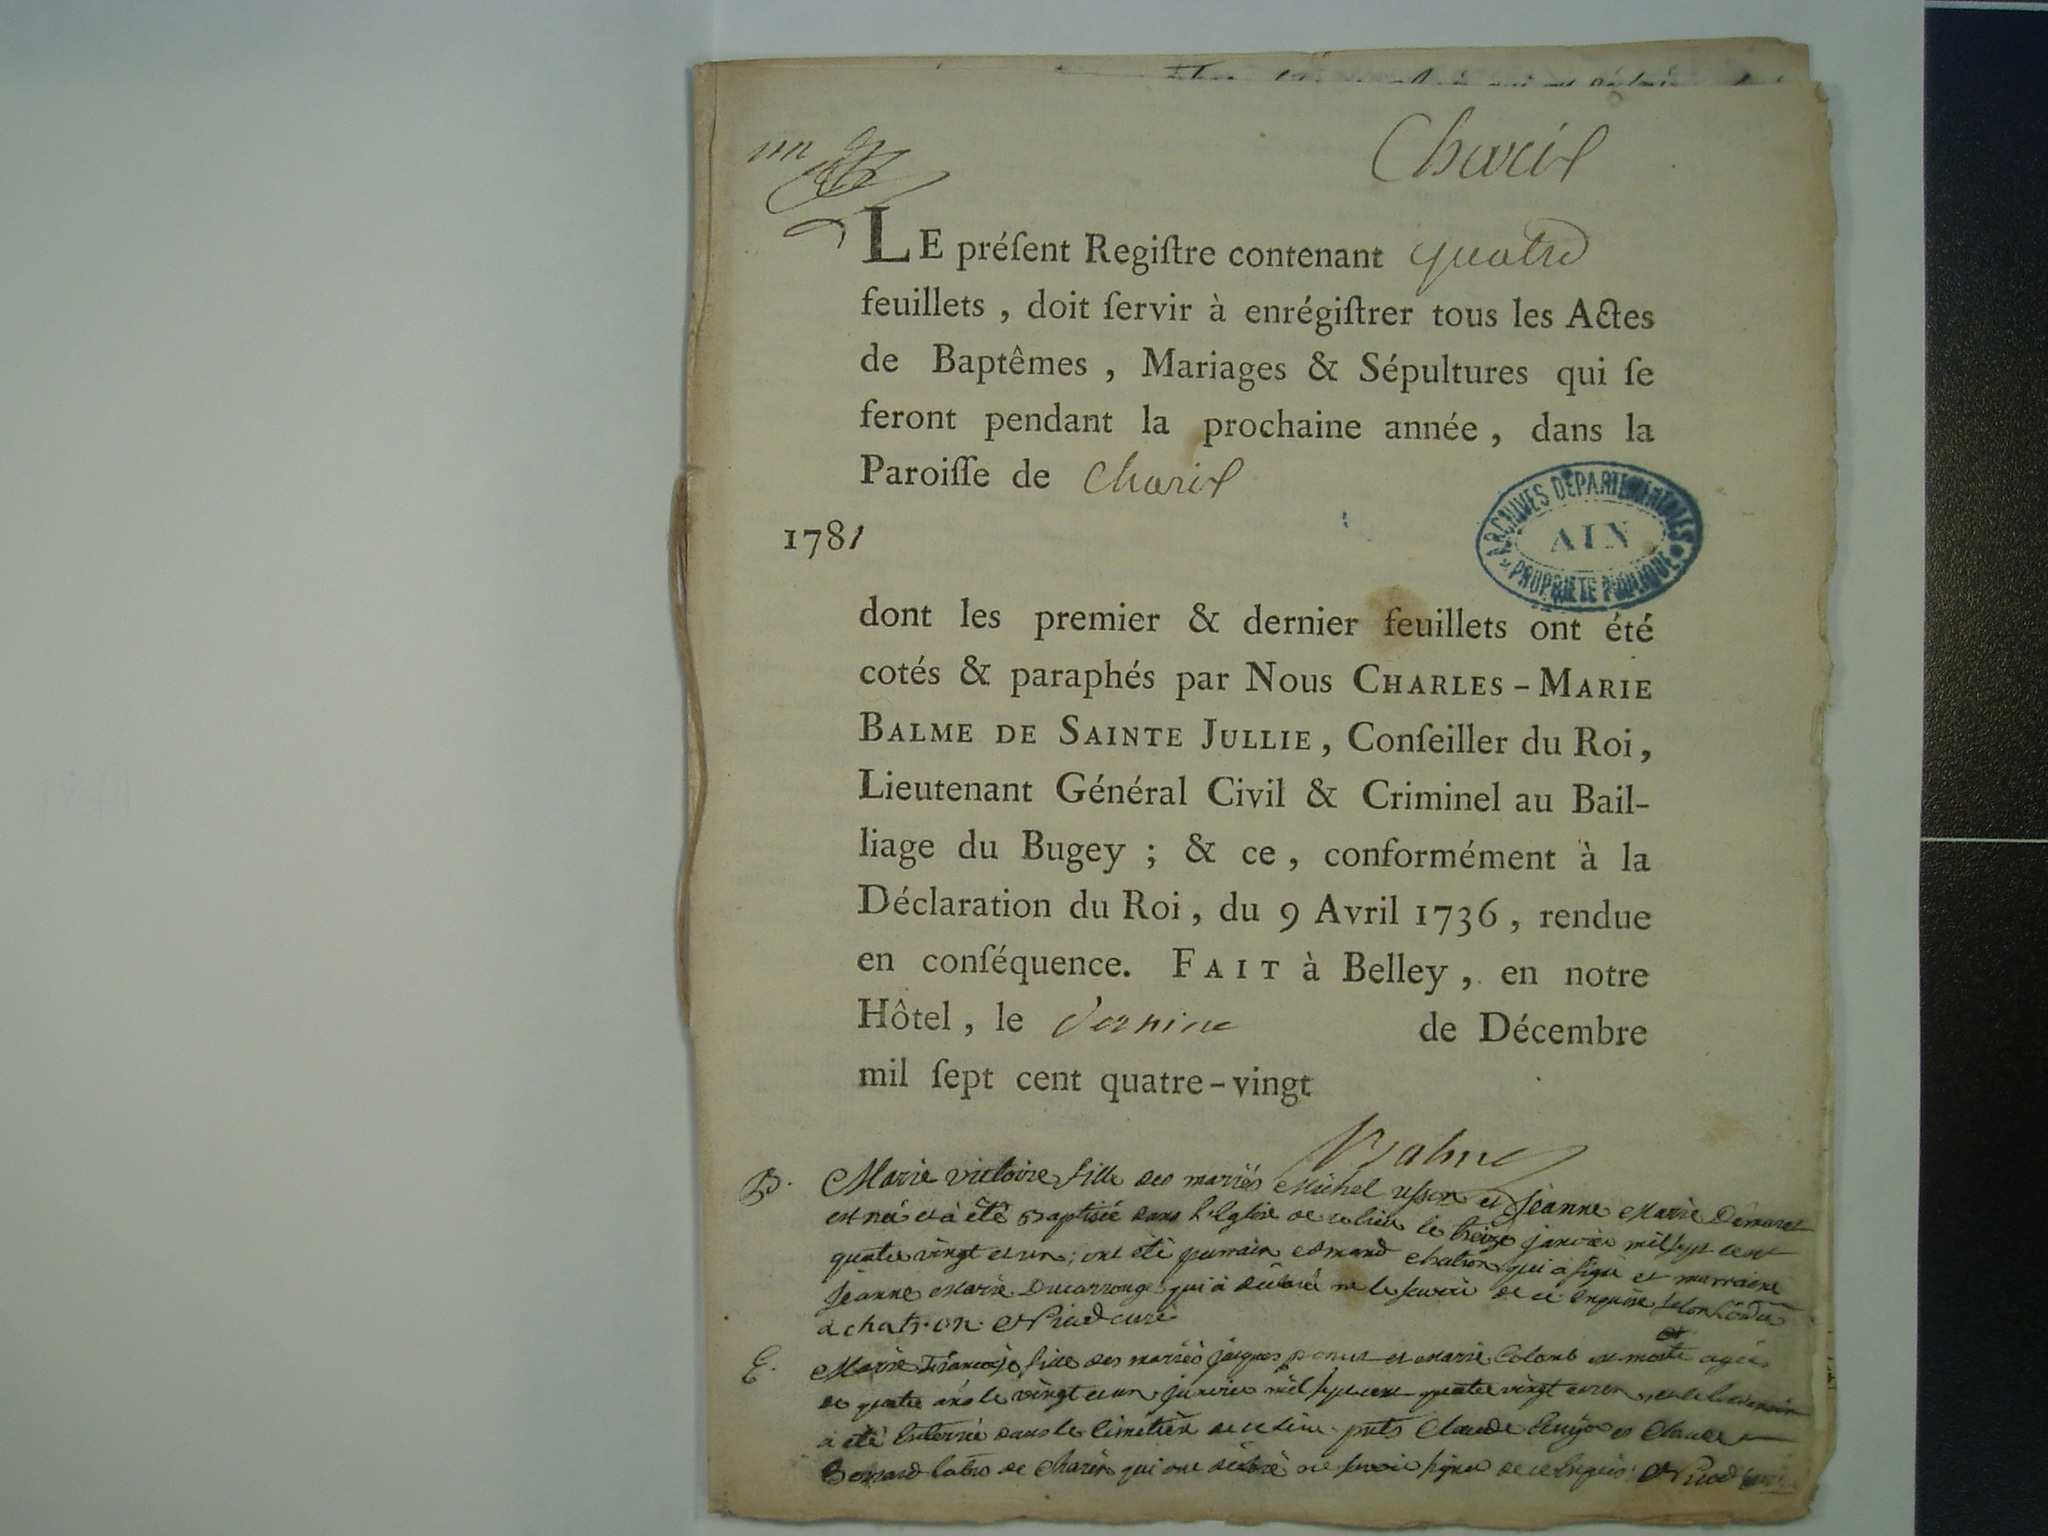 Charix
LE préſent Regiſtre contenant quatre
feuillets, doit ſervir à enrégiſtrer tous les Actes
de Baptêmes, Mariages & Sépultures qui ſe
feront pendant la prochaine année, dans la
Paroiſſe de Charix
ARCHIVES DÉPARTEMENTALES
AIN
PROPRIÉTÉ PUBLIQUE
1781
dont les premier & dernier feuillets ont été
cotés & paraphés par Nous CHARLES-MARIE
BALME DE SAINTE JULLIE, Conſeiller du Roi,
Lieutenant Général Civil & Criminel au Bail-
liage du Bugey; & ce, conformément à la
Déclaration du Roi, du 9 Avril 1736, rendue
en conſéquence. FAIT à Belley, en notre
Hôtel, le de Décembre
mil ſept cent quatre-vingt
Balme
B. Marie victoire fille des mariés Michel et Jeanne Marie
est née et à été Baptisée dans l'Eglise de ce lieu le treize janvier mil sept cent
quatre vingt et un; ont été parrain Edmand Chatron qui a signé et marraine
Jeanne Marie Ducarrouge qui à déclaré ne le scavoir de ce Enquise selon L'ordce
a chatron curé
E. Marie Françoise fille des mariés jacques et Marie Colomb est morte agée
de quatre ans le vingt et un janvier mil sept cent quatre vingt et un, et le
à été Enterrée dans le Cimetière de ce lieu pnts Claude et Claude
Bernard labrs de Charix qui ont déclaré ne scavoir signer de ce Enquis